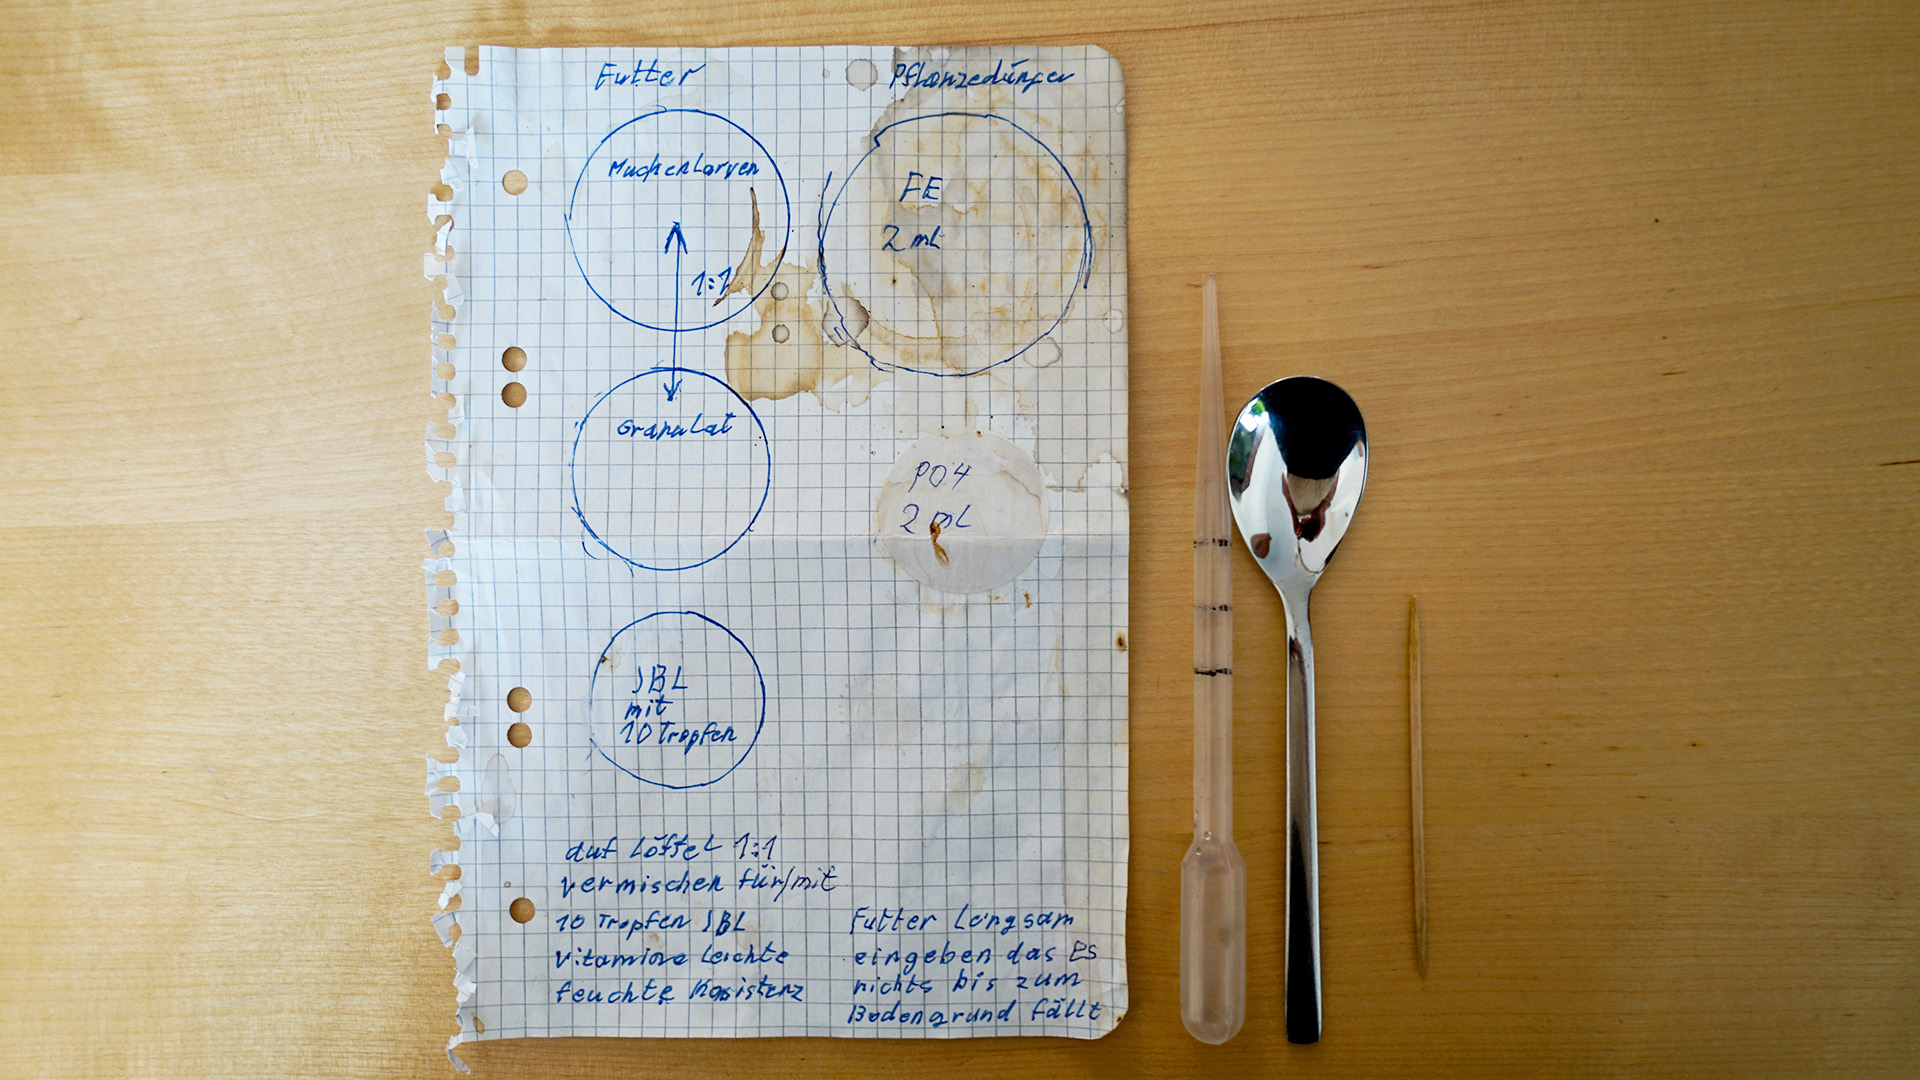 Futter
Muckenlarven
1:1
Granulat
JBL
mit
10 Tropfen
auf Löffel 1:1
vermischen für/mit
10 Tropfen JBL
vitamine leichte
feuchte Kosistenz
Pflanzedünger
FE
2 mL
PO4
2 mL
Futter Langsam
eingeben das Es
nichts bis zum
Bodengrund fällt